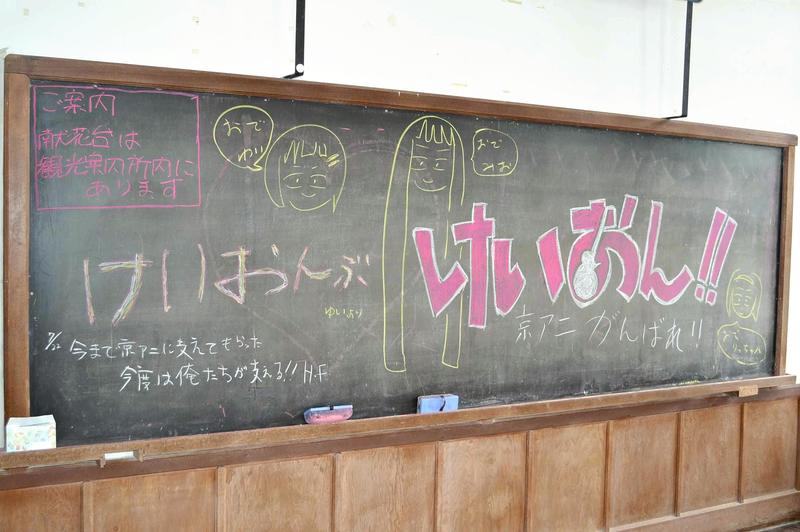 ご案内
献花台は
観光案内所内に
あります
おで
ゆい
おで
みお
けいおんぶ
ゆいより
けいおん!!
京アニがんばれ!!
7/22 今まで京アニに支えてもらった
今度は俺たちが支える!! H.F